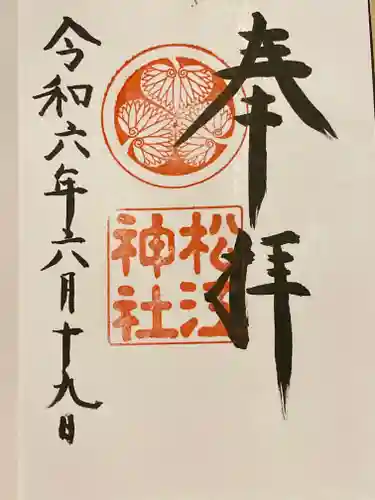 奉拝
松江
神社
令和六年六月十九日